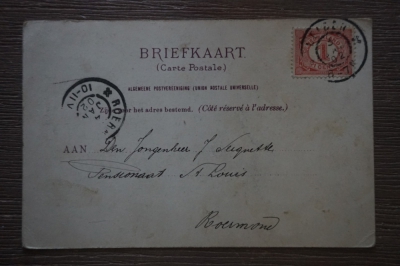 BRIEFKAART
(Carte Postale)
ALGEMEENE POSTVEREENIGING (UNION POSTALE UNIVERSELLE)
het adres bestemd. (Côté réservé à l'adresse.)
10-11V
ROER
AAN Den Jongenheer J
Pensionaat St Louis
Roermond